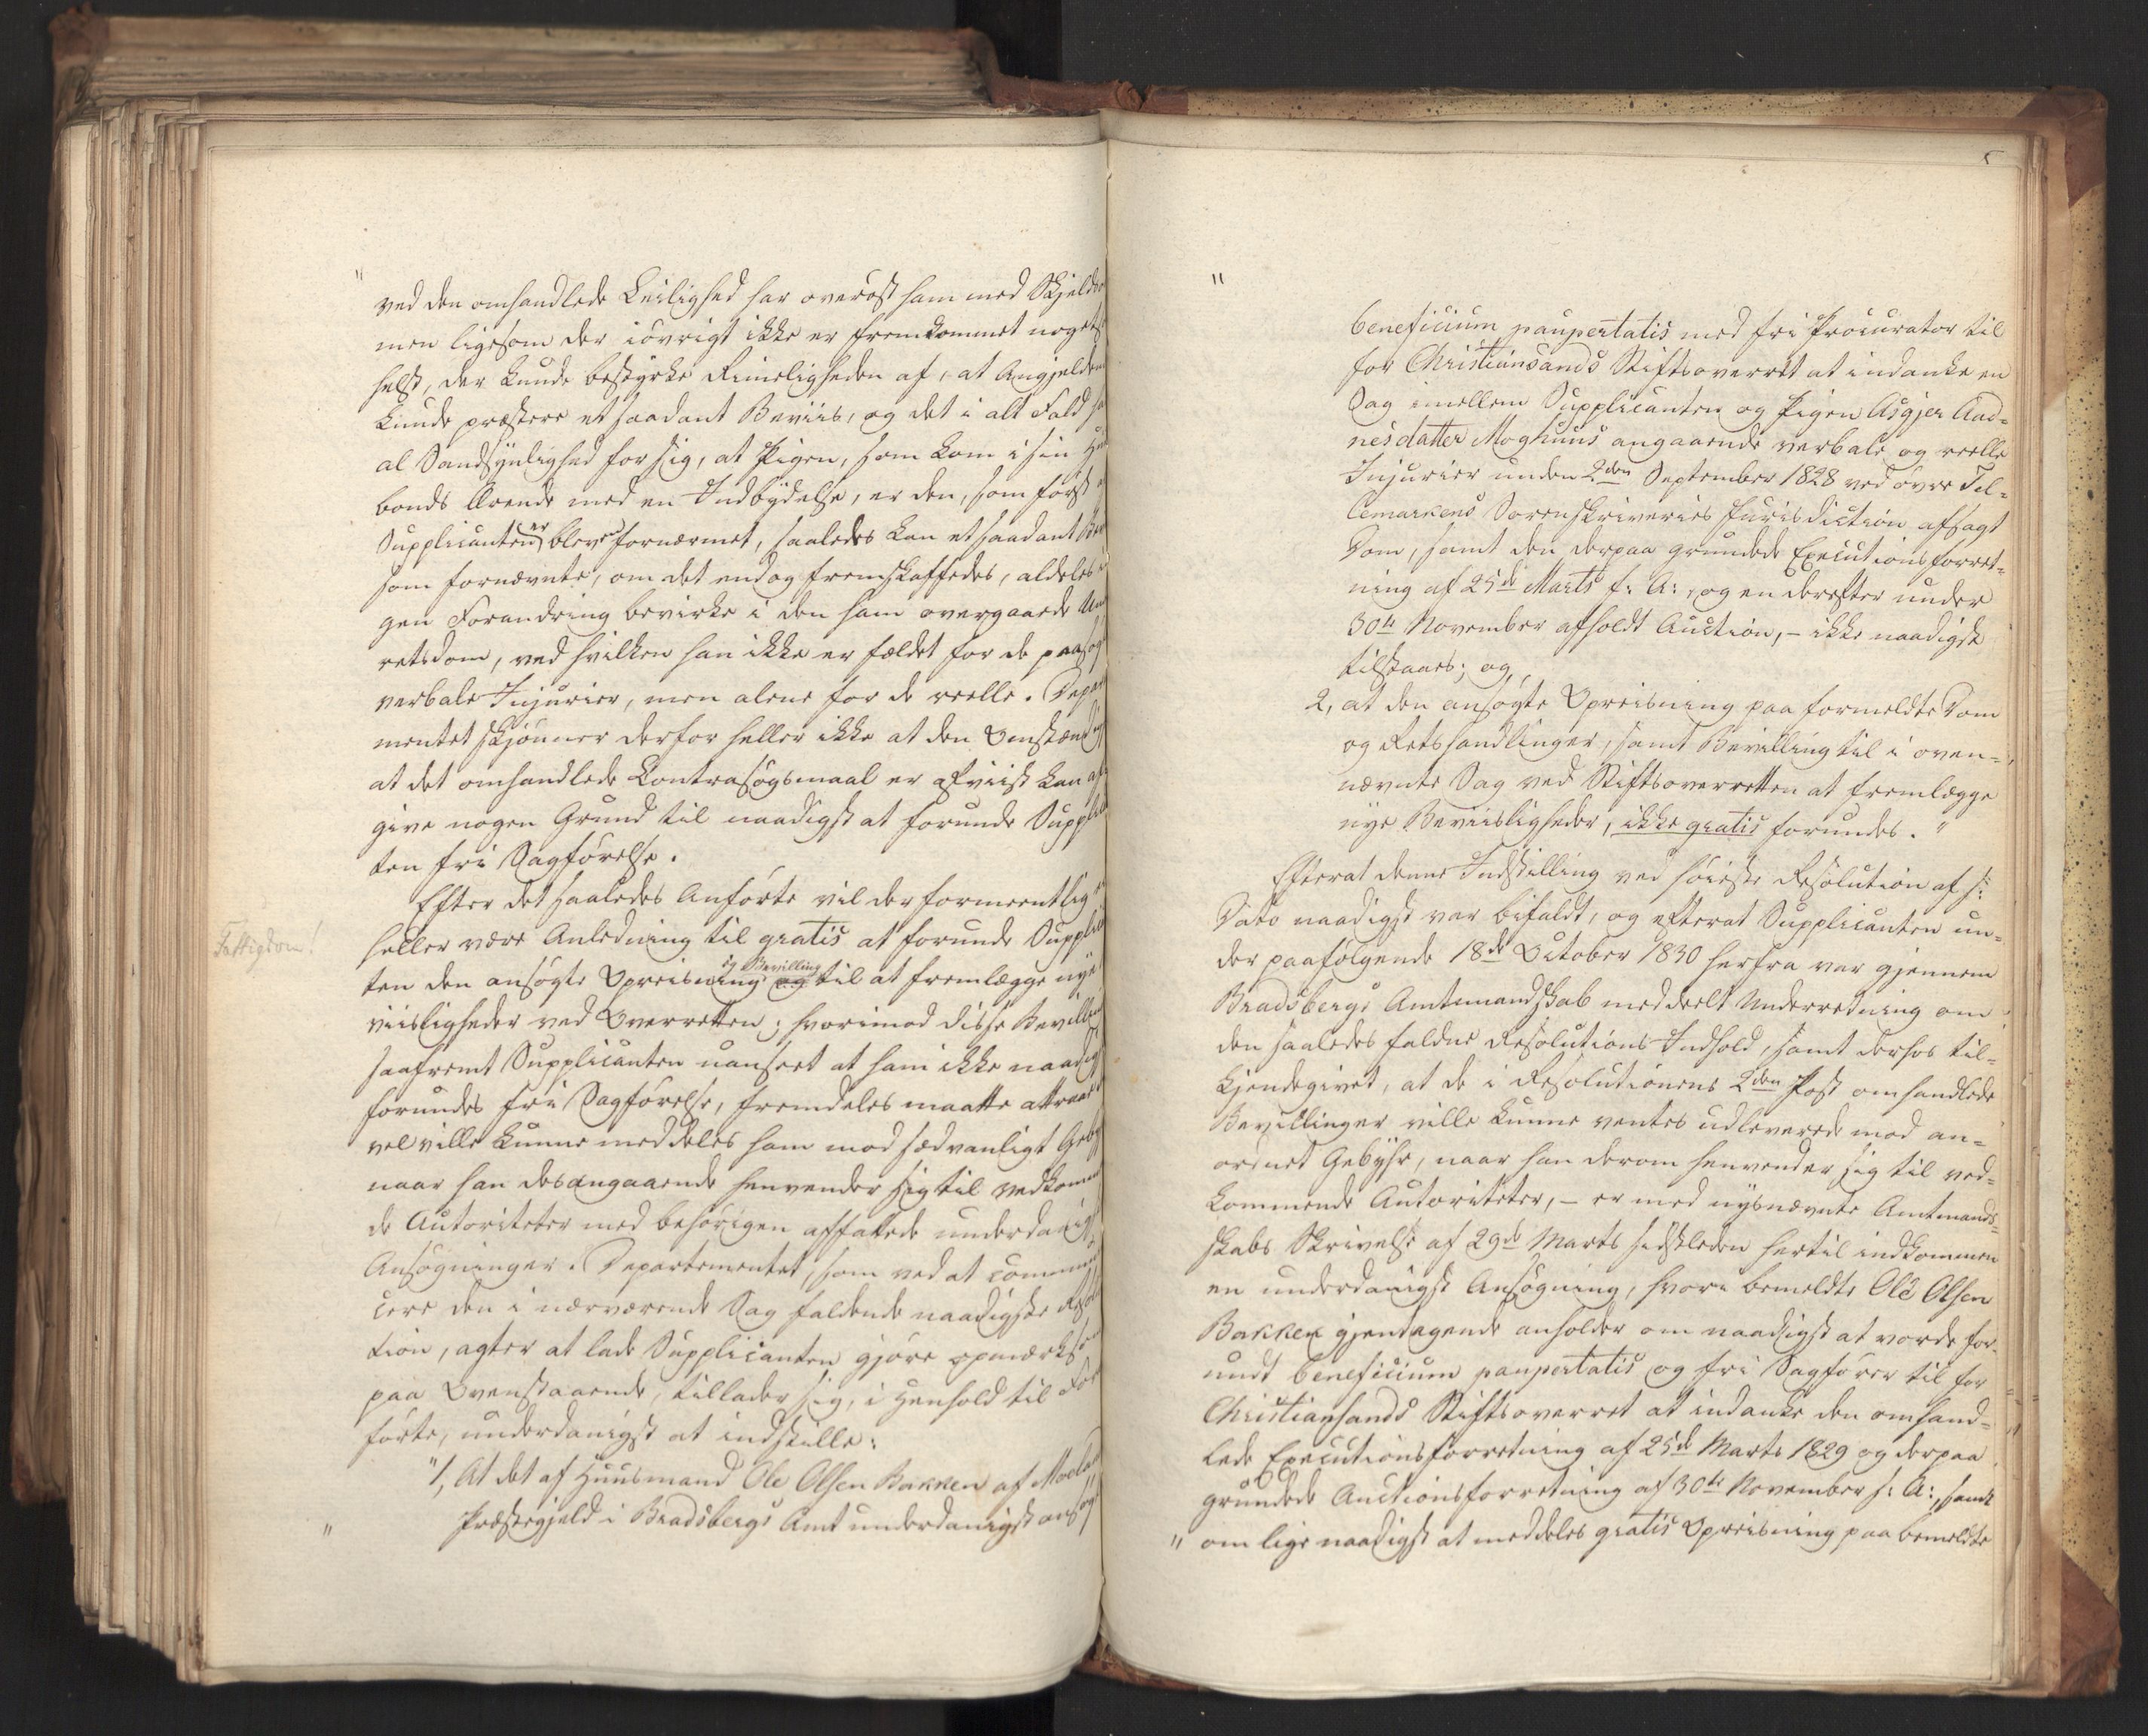 "
ved den omhandlede Leilighed har overøst ham med Skjelds
men ligesom der iøvrigt ikke er fremkommet noget
helst, der kunde bestyrke Rimeligheden af, at Angjelden
kunde præstere et saadant Beviis, og det i alt Fald
al Sandsynlighed for sig, at Pigen, som kom i sin Huus
bonds Ærende med en Indbydelse, er den, som først
Supplicanten er bleven fornærmet, saaledes kan et saadant
som fornævnte, om det endog fremskaffedes, aldeles
gen Forandring bevirke i den ham overgaaede Un
retsdom, ved hvilken han ikke er fældet for de paasag
verbale Injurier, men alene for de reelle. Depar
mentet skjønner derfor heller ikke at den Omstændig
at det omhandlede Contrasøgsmaal er afviist kan af
give nogen Grund til naadigst at forunde Supplican
ten fri Sagførelse.
Efter det saaledes Anførte vil der formeentlig
heller være Anledning til gratis at forunde Supplican
Fattigdom!
ten den ansøgte Opreisning og Bevilling til at fremlægge nye
viisligheder ved Overretten; hvorimod disse Bevilling
saafremt Supplicanten uanseet at ham ikke naadigst
forundes fri Sagførelse, fremdeles maatte attraae
vel ville kunne meddeles ham mod sædvanligt Geby
naar han desangaaende henvender sig til vedkommen
de Autoriteter med behørigen affattede underdanigst
Ansøgninger. Departementet, som ved at commun
cere den i nærværende Sag faldende naadigste Resolu
tion, agter at lade Supplicanten gjøre opmærksom
paa Ovenstaaende, tillader sig, i Henhold til For
førte, underdanigst at indstille:
"1, At det af Huusmand Ole Olsen Bakken af Moeland
" Præstegjeld i Bradsbergs Amt underdanigst ansøgt
"
beneficium paupertatis med fri Procurator til
for Christiansands Stiftsoverret at indanke en
Sag imellem Supplicanten og Pigen Asgjer Aad=
nesdatter Moghuus angaaende verbale og reelle
Injurier under 2den September 1828 ved øvre Tel=
lemarkens Sorenskriveries Jurisdiction afsagt
Dom, samt den derpaa grundede Executionsforret=
ning af 25de Marts f: A:, og en derefter under
30te November afholdt Auction, – ikke naadigst
tilstaaes; og
2, at den ansøgte Opreisning paa formeldte Dom
og Retshandlinger, samt Bevilling til i oven=
nævnte Sag ved Stiftsoverretten at fremlægge
nye Beviisligheder, ikke gratis forundes."
Efterat denne Indstilling ved høieste Resolution af s:
Dato naadigst var bifaldt, og efterat Supplicanten un=
der paafølgende 18de October 1830 herfra var gjennem
Bradsbergs Amtmandskab meddeelt Underretning om
den saaledes faldne Resolutions Indhold, samt derhos til=
kjendegivet, at de i Resolutionens 2den Post omhandlede
Bevillinger ville kunne ventes udleverede mod an=
ordnet Gebyhr, naar han derom henvender sig til ved=
kommende Autoriteter, – er med nysnævnte Amtmand=
skabs Skrivelse af 29de Marts sidstleden hertil indkommen
en underdanigst Ansøgning, hvori bemeldte Ole Olsen
Bakken gjentagende anholder om naadigst at vorde for=
undt beneficium paupertatis og fri Sagfører til for
Christiansands Stiftsoverret at indanke den omhand=
lede Executionsforretning af 25de Marts 1829 og derpaa
grundede Auctionsforretning af 30te November s: A:, samt
" om lige naadigst at meddeles gratis Opreisning paa bemeldte